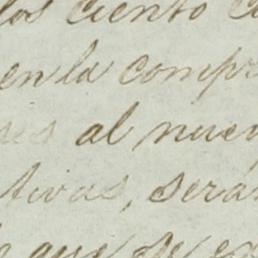 los ciento
en la compr
al nuev
tivas, será
que se